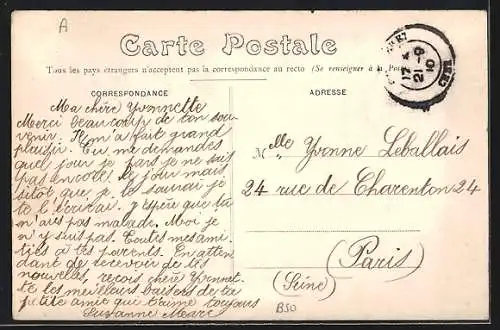 A
Carte Postale
Tous les pays étrangers n'acceptent pas la correspondance au recto (Se renseigner à la Poste)
CORRESPONDANCE
ADRESSE
Ma chère Yvonnette
Merci beaucoup de ton sou-
venir. Il m'a fait grand
plaisir. Tu me demandes
quel jour je pars je ne sais
pas encore le jour mais
sitôt que je le saurai je
te l'écrirai. J'espère que tu
n'es pas malade. Moi je
n'y suis pas. Toutes mes ami-
tiés à tes parents. En atten
dant de recevoir de tes
nouvelles, reçois chère Yvonnet-
te les meilleurs baisers de ta
petite amie qui t'aime toujours
Suzanne
Melle Yvonne Leballais
24 rue de Charenton 24
Paris
(Seine)
B50
17 4
21-9
10
CHER